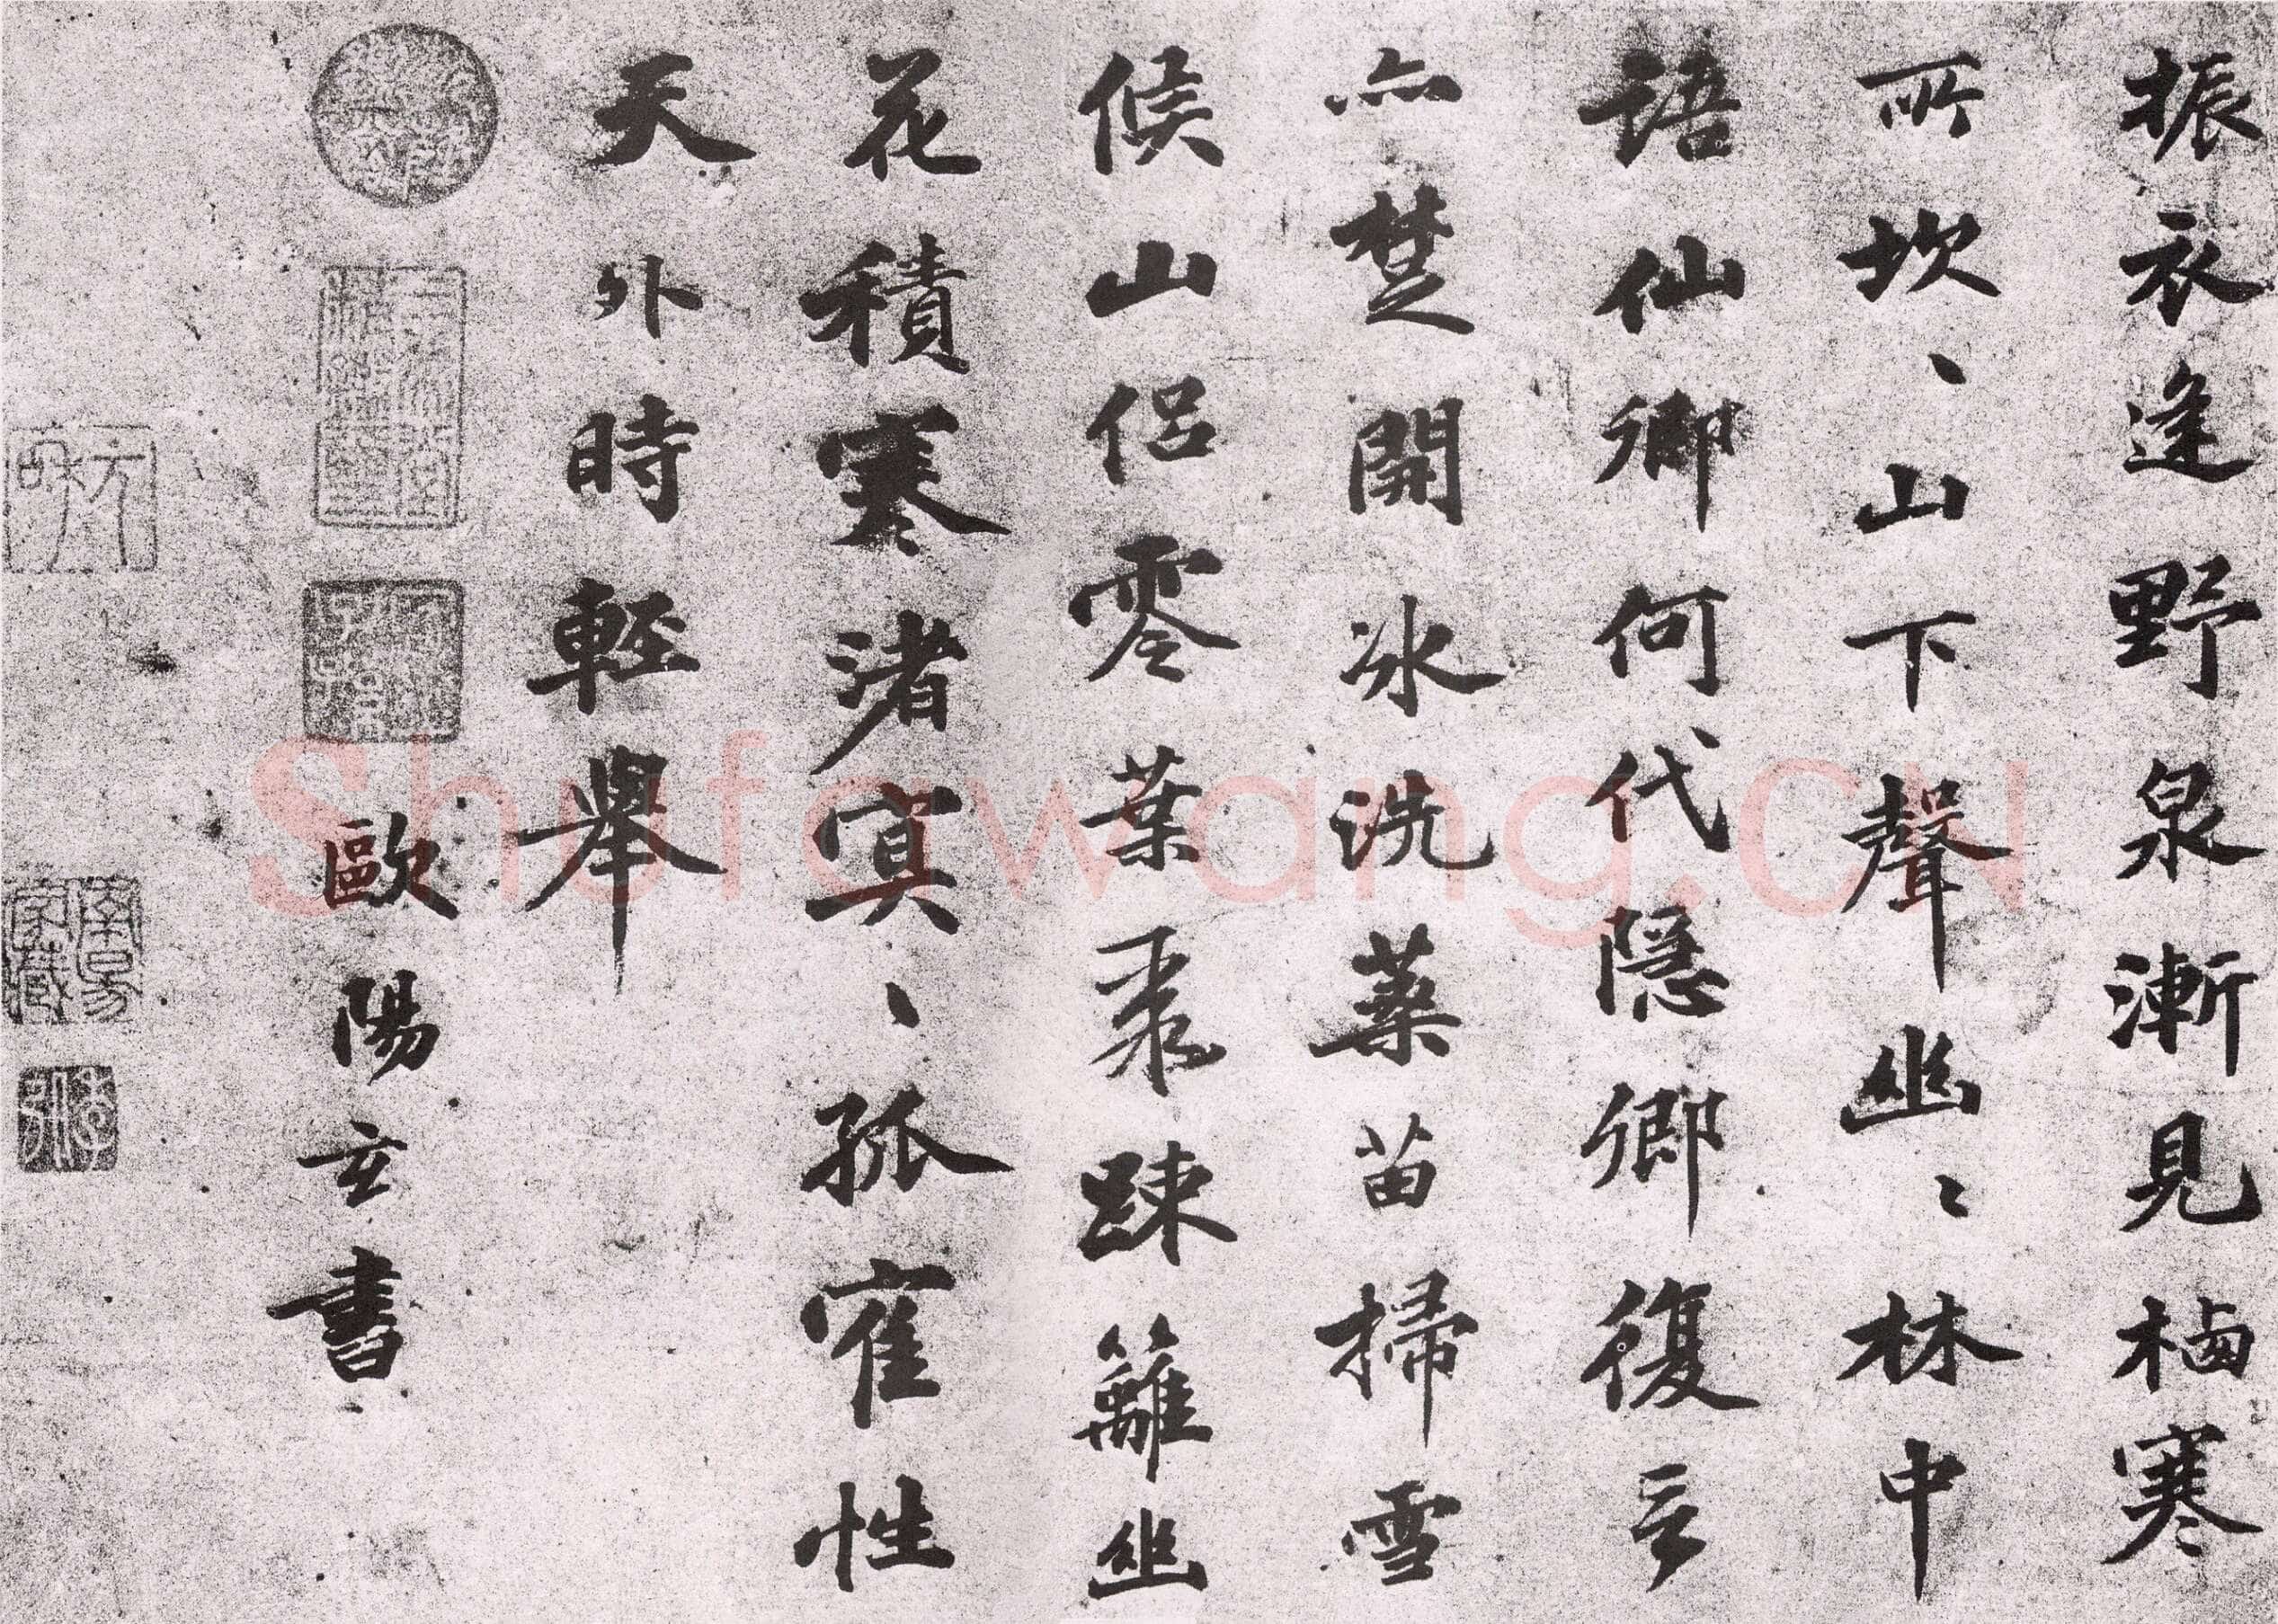 振衣逢野泉漸見栖寒
所坎、山下聲幽、林中
語仙卿何代隱卿復言
亦楚開冰洗藥苗掃雪
候山侶零葉棗踈籬幽
花積寒渚寘、孤隺性
天外時輕舉
歐陽玄書
Shufawang.CN